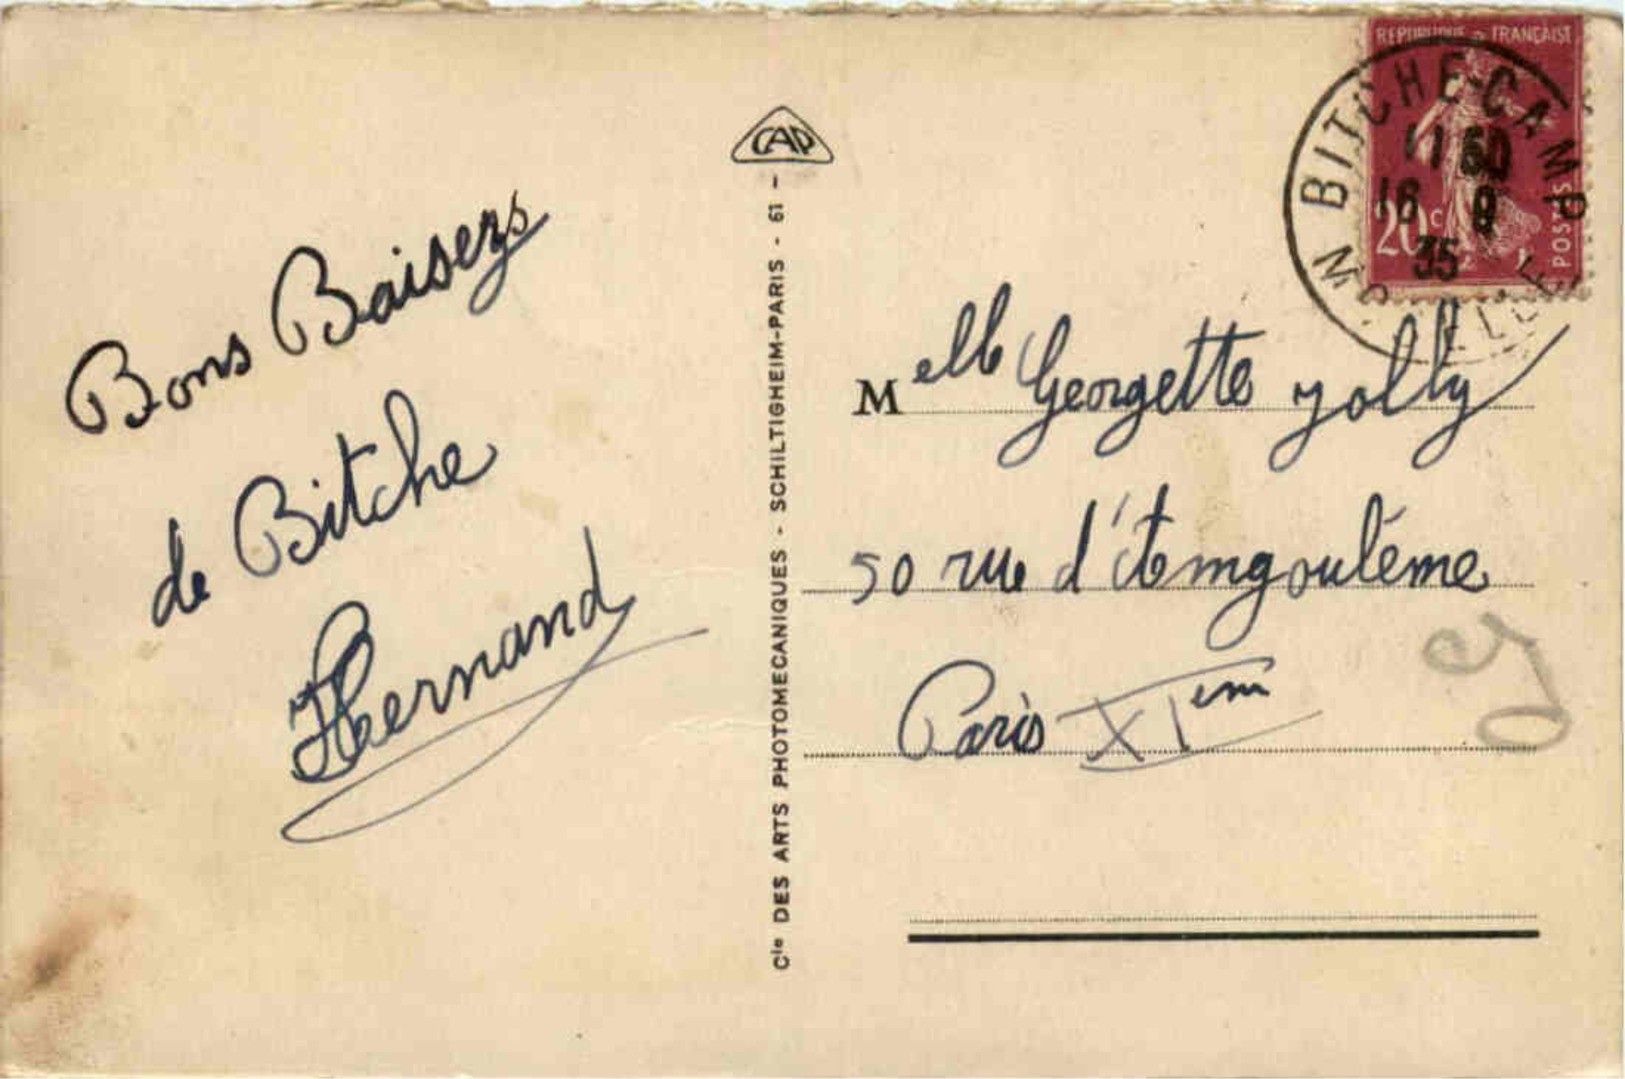 Bons Baisers
de Bitche
Hernand
CAP
Cie DES ARTS PHOTOMECANIQUES - SCHILTIGHEIM-PARIS - 61 -
REPUBLIQUE FRANÇAISE
20c
POSTES
BITCHE-CAMP
11 50
16 9
35
MOSELLE
Melle Georgette Jolly
50 rue d'Angoulême
Paris XIem